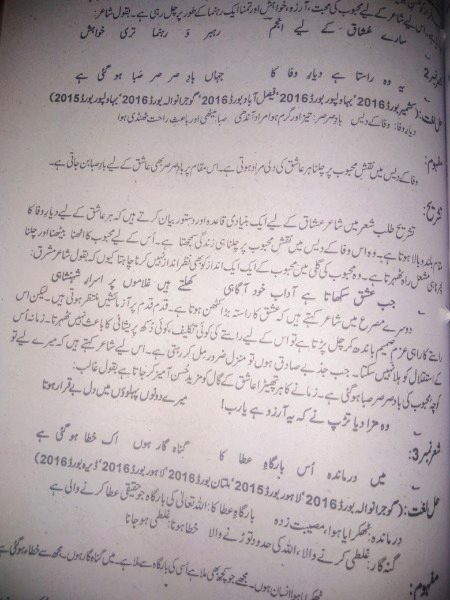 ہے، اس لیے شاعر کے لیے محبوب کی محبت، آرزو، خواہش اور تمنا ایک رہنما کے طور پر چل رہی ہے۔ بقول شاعر:
سارے عشاق کے لیے انجم رہبر و رہنما تری خواہش
شعر نمبر 2:
یہ وہ راستا ہے دیارِ وفا کا جہاں بادِ صر صر صبا ہو گئی ہے
حل لغت: (کشمیر بورڈ 2016، بہاولپور بورڈ 2016، فیصل آباد بورڈ 2016، گوجرانوالہ بورڈ 2016، بہاولپور بورڈ 2015)
دیارِ وفا: وفا کے دیس بادِ صرصر: تیز اور گرم ہوا مراد آندھی صبا: میٹھی اور باعث راحت ٹھنڈی ہوا
مفہوم:
وفا کے دیس میں نقش محبوب پر چلنا ہر عاشق کی دلی مراد ہوتی ہے۔ اس مقام پر بادِ صر صر بھی عاشق کے لیے بادِ صبا بن جاتی ہے۔
تشریح:
تشریح طلب شعر میں شاعر عشاق کے لیے ایک بنیادی قاعدہ اور دستور بیان کرتے ہیں کہ ہر عاشق کے لیے دیارِ وفا کا
مقام بلند و بالا ہوتا ہے۔ وہ اس وفا کے دیس میں نقش محبوب پر چلنا ہی زندگی سمجھتا ہے۔ اس کے لیے محبوب کا اٹھنا بیٹھنا اور چلنا
پھرنا ہی مشعل راہ ٹھہرتا ہے۔ وہ محبوب کی گلی میں محبوب کے ایک ایک انداز کو بھی نظر انداز نہیں کرنا چاہتا کیوں کہ بقول شاعر مشرق:
جب عشق سکھاتا ہے آداب خود آگاہی کھلتے ہیں غلاموں پر اسرار شہنشاہی
دوسرے مصرع میں شاعر کہتے ہیں کہ عشق کا راستہ بڑا کٹھن ہوتا ہے۔ قدم قدم پر آزمائشیں منتظر ہوتی ہیں۔ لیکن اس
راستے کا راہی عزم صمیم باندھ کر چل پڑتا ہے تو اس کے لیے راستے کی کوئی تکلیف، کوئی دکھ پریشانی کا باعث نہیں ٹھہرتا۔ زمانہ اُس
کے استقلال کو ہلا نہیں سکتا۔ جب جذبے صادق ہوں تو منزل ضرور مل کر رہتی ہے۔ اس لیے شاعر کہتے ہیں کہ میرے لیے تو
کوچہ محبوب کی بادِ صر صر صبا ہو گئی ہے۔ زمانے کا ہر تھپیڑا عاشق کے گال کو مزید حُسن آمیز کر جاتا ہے بقول غالب:
وہ مزا دیا تڑپ نے کہ یہ آرزو ہے یارب! میرے دونوں پہلوؤں میں دل بے قرار ہوتا
شعر نمبر 3:
میں درماندہ اُس بارگاہِ عطا کا گناہ گار ہوں اک خطا ہو گئی ہے
حل لغت: (گوجرانوالہ بورڈ 2016، لاہور بورڈ 2015، ملتان بورڈ 2016، لاہور بورڈ 2016، ڈیرہ بورڈ 2016)
درماندہ: ٹھکرایا ہوا، مصیبت زدہ بارگاہِ عطا کا: اللہ تعالی کی بارگاہ جو حقیقی عطا کرنے والی ہے
گنہگار: غلطی کرنے والا، اللہ کی حدود توڑنے والا خطا ہونا: غلطی ہو جانا
مفہوم:
ٹھکرایا ہوا انسان ہوں۔ مجھے جو کچھ بھی ملا ہے اُس کی بارگاہ سے ملا ہے۔ میں گناہ گار ہوں۔ مجھ سے خطا ہو گئی ہے